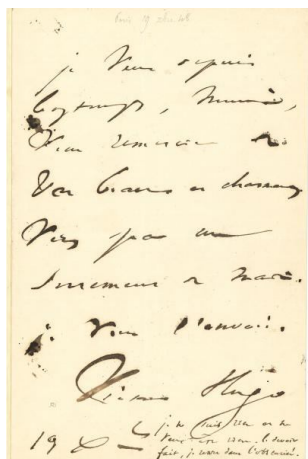 je veux depuis
longtemps, Monsieur,
vous remercier de
vos beaux et charmants
vers par un
serrement de main.
je vous l'envoie.
Victor Hugo
19
je ne suis rien et ne
veux être rien. le devoir
fait, je rentre dans l'obscurité.